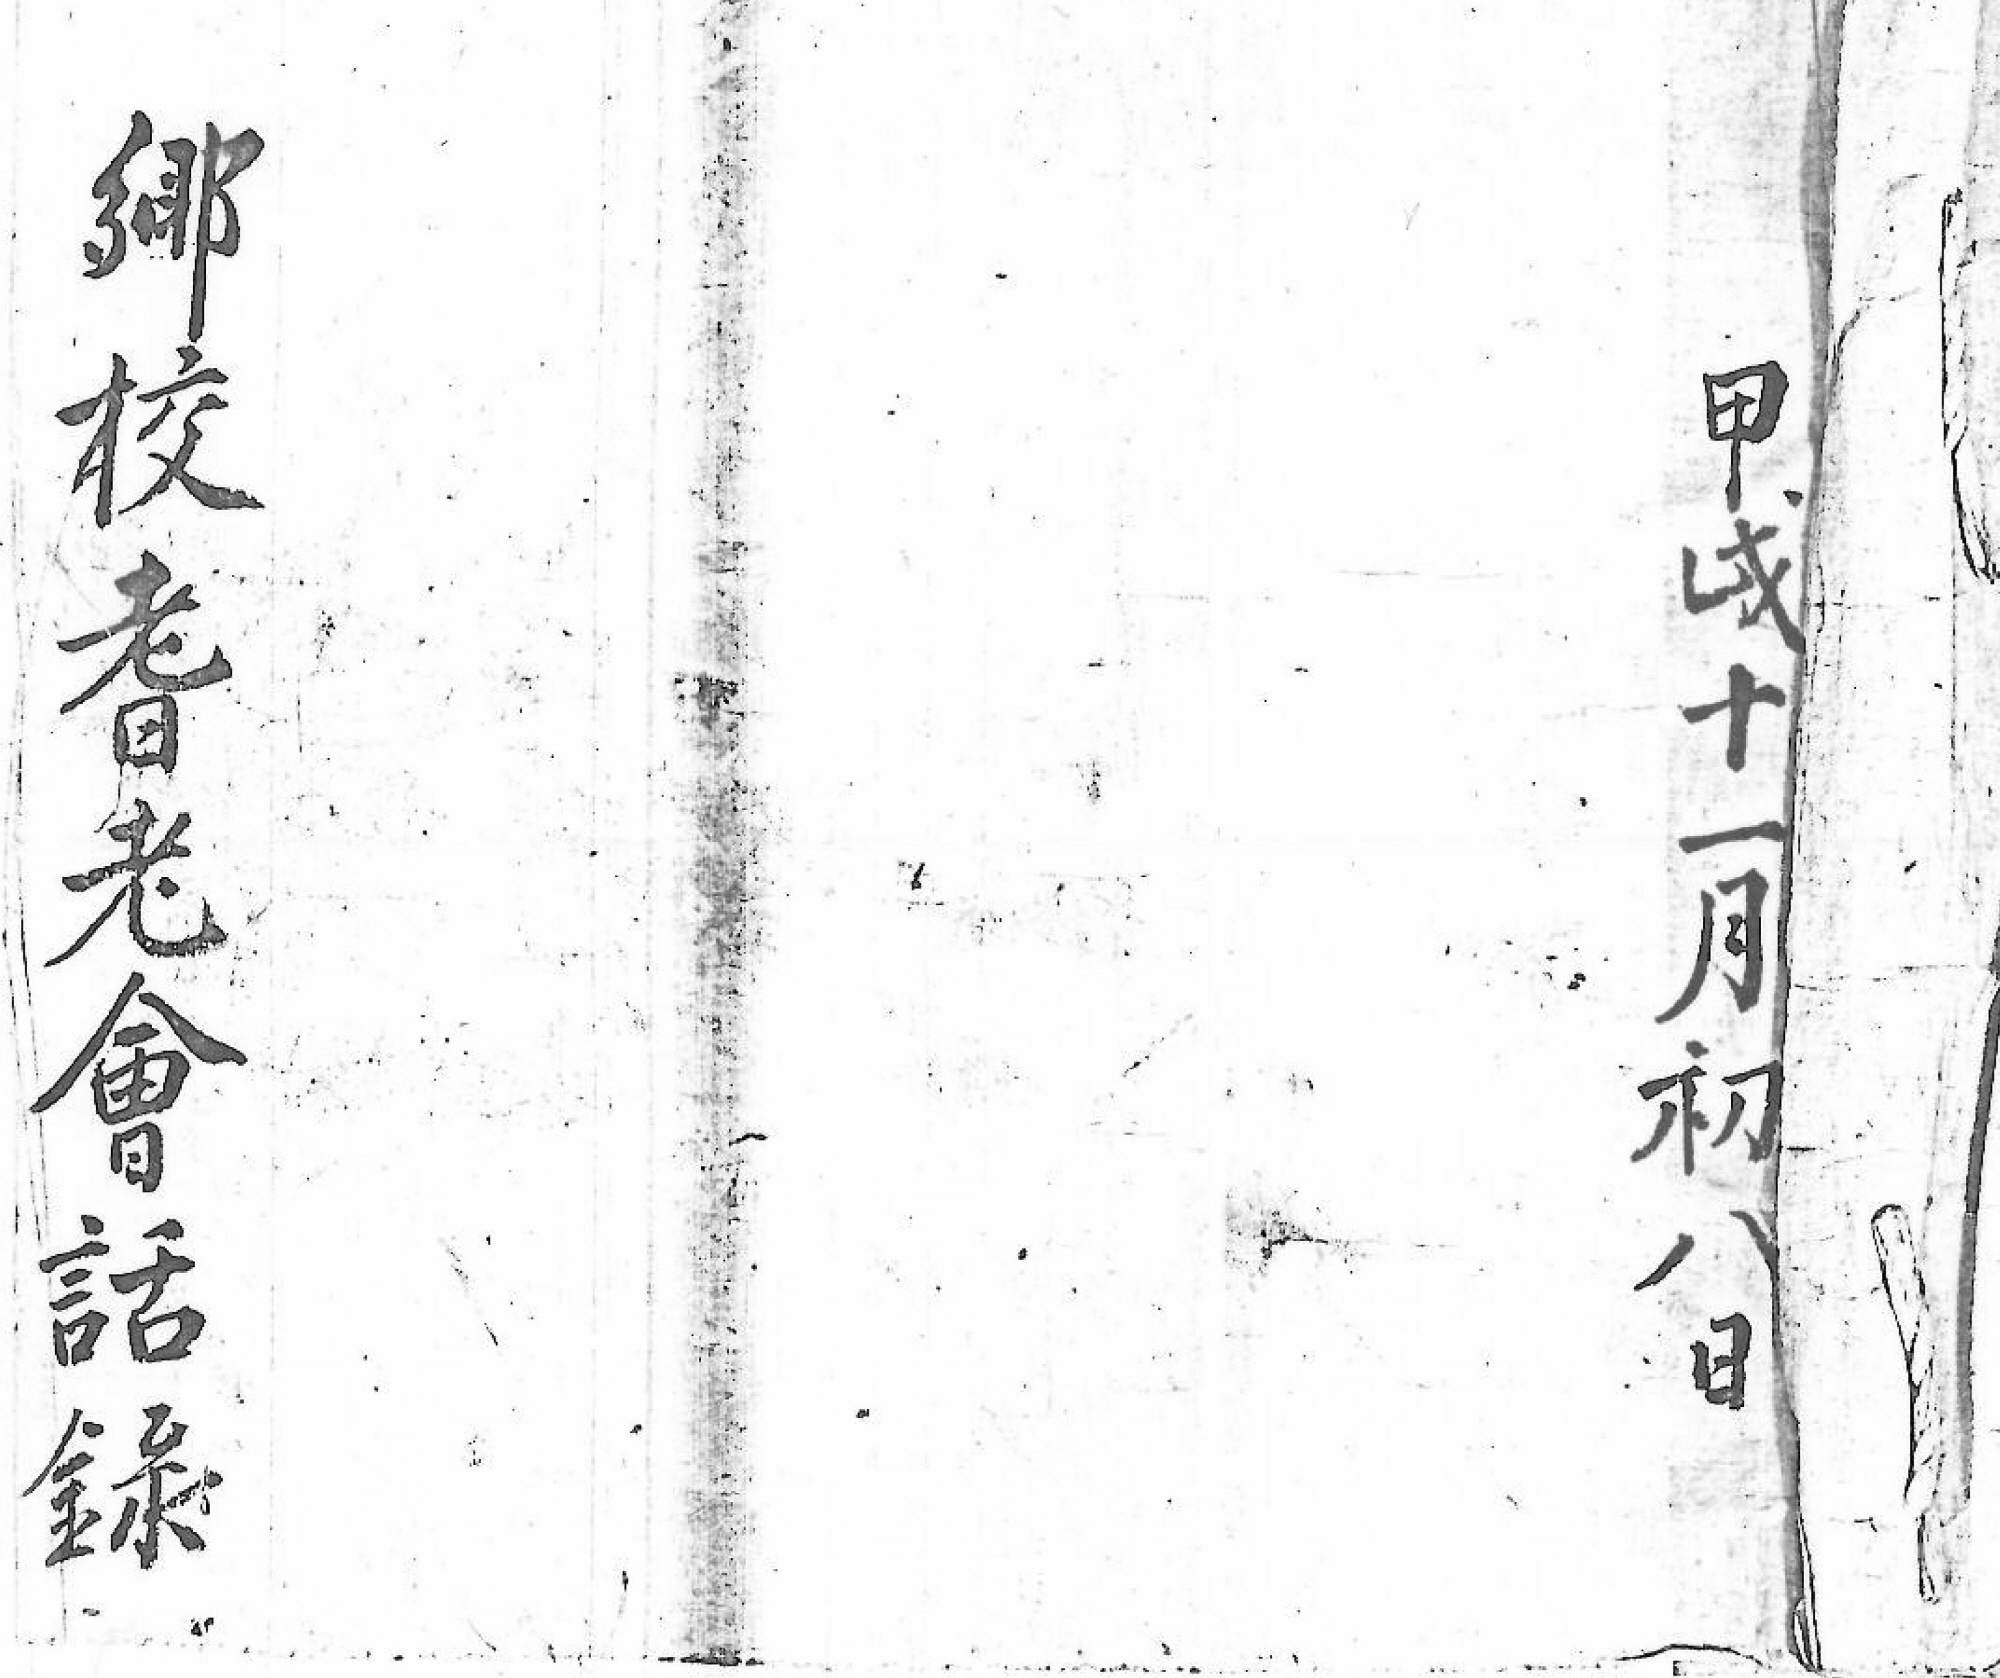 甲戌十一月初八日
鄕校耆老會話錄